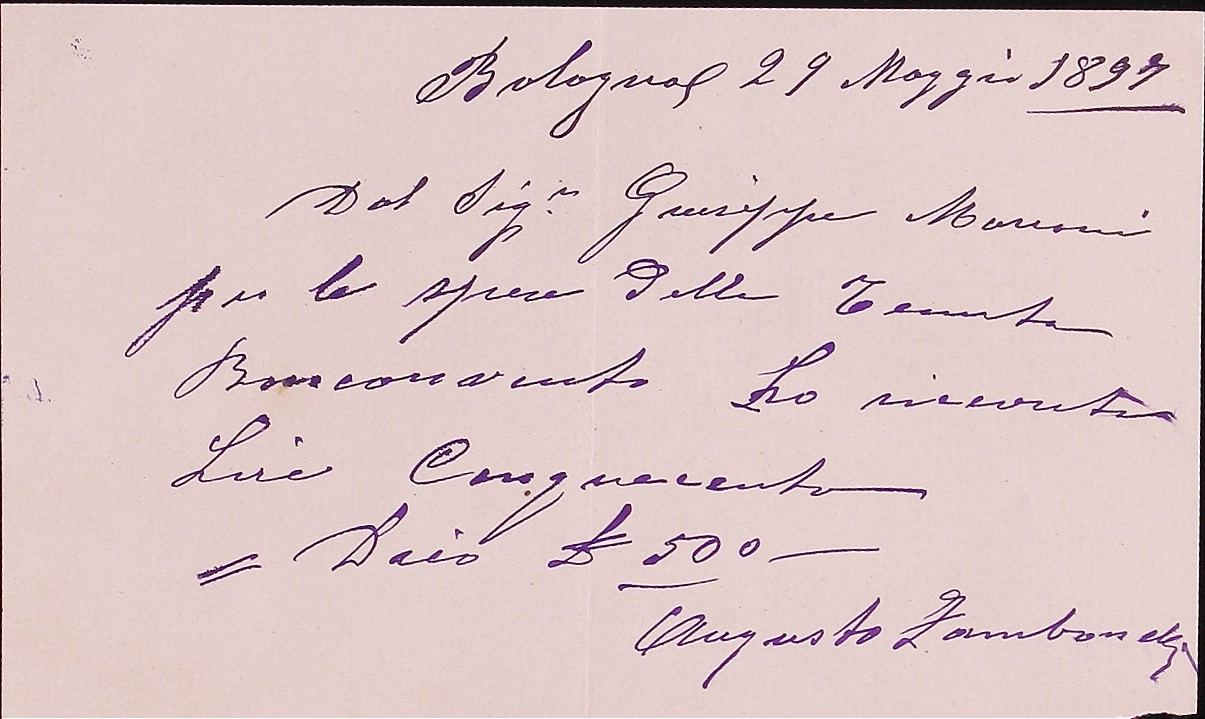 Bologna 29 Maggio 1897
Dal Sigr Giuseppe
per le spese della Tenuta
Bonconvento Ho ricevuto
Lire Cinquecento
= Dico £ 500 —
Augusto Zambonelli